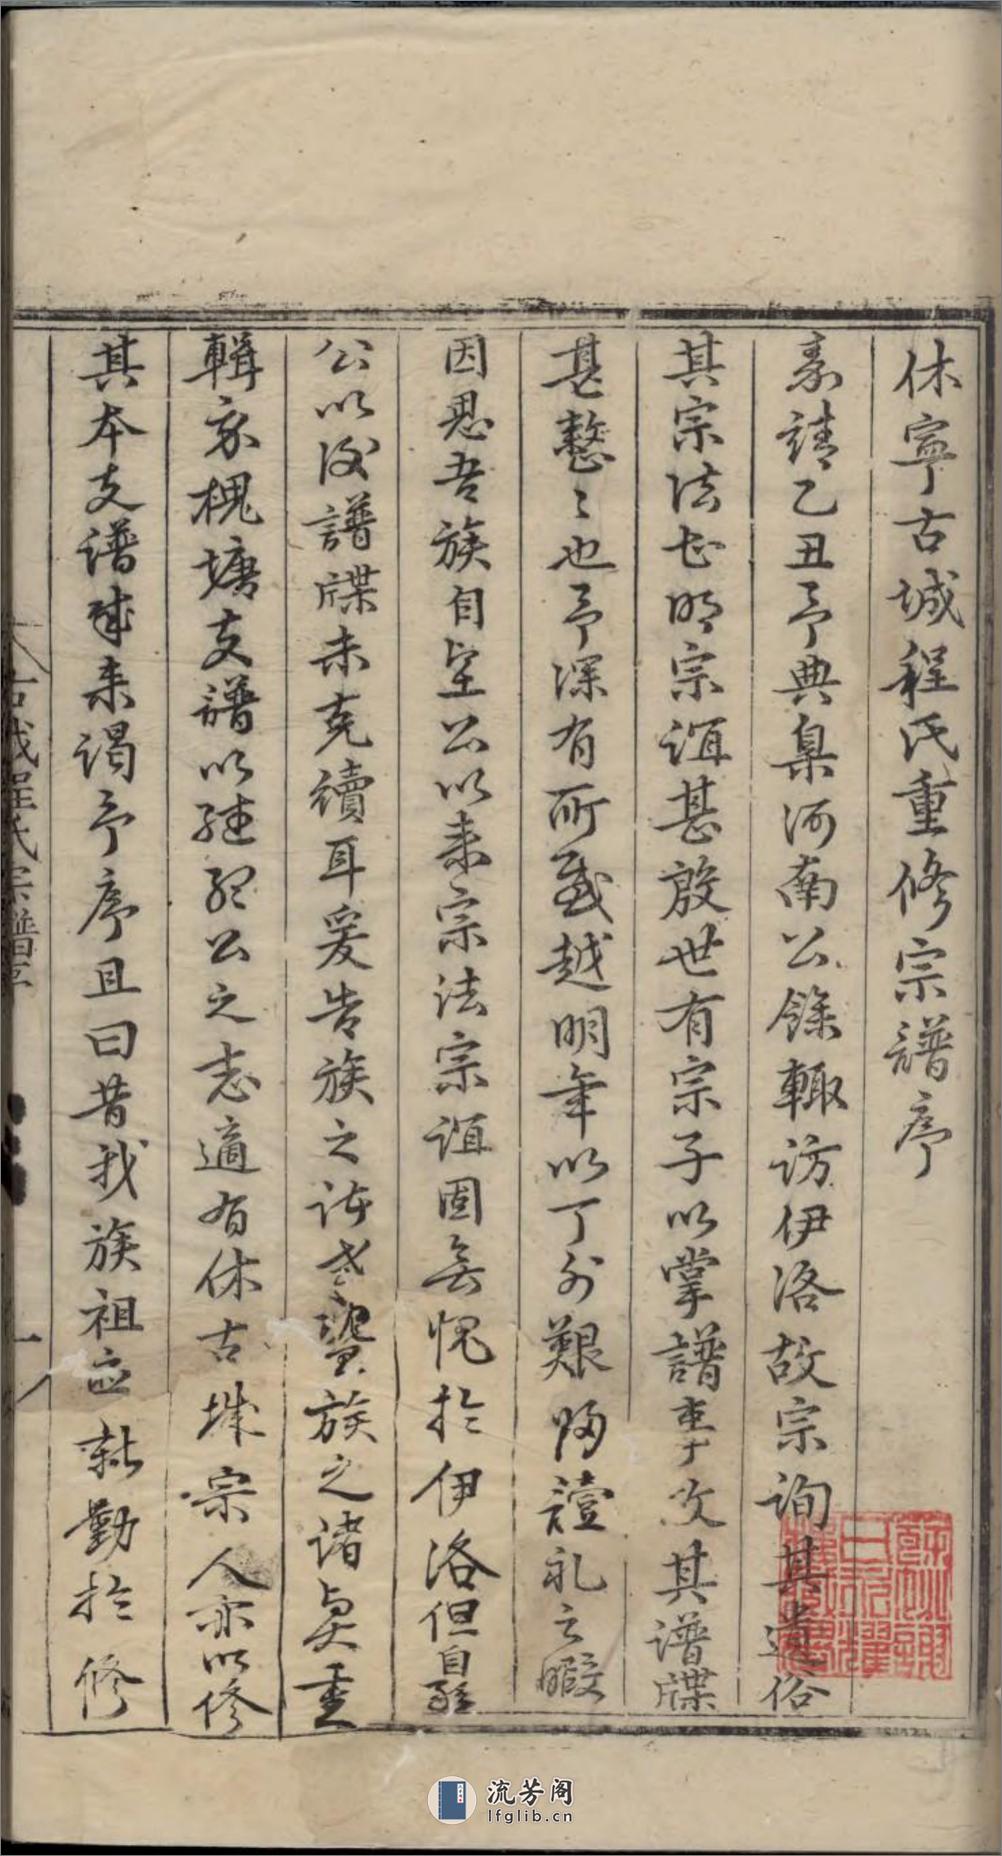 休寧古城程氏重修宗譜序
嘉靖乙丑予典臬河南公餘輒訪伊洛故宗詢其遺俗
其宗法甚明宗誼甚殷世有宗子以掌譜事攷其譜牒
甚整〻也予深有所感越明年以丁外艱歸讀礼之暇
因思吾族自 公以来宗法宗誼固無愧於伊洛但自
公以後譜牒未克續耳爰告族之 族之諸 重
輯京槐塘支譜以繼 公之志適有休古城宗人亦以修
其本支譜成来謁予序且曰昔我族祖 勤於修
古城程氏宗譜序
一
流芳阁
lfglib.cn